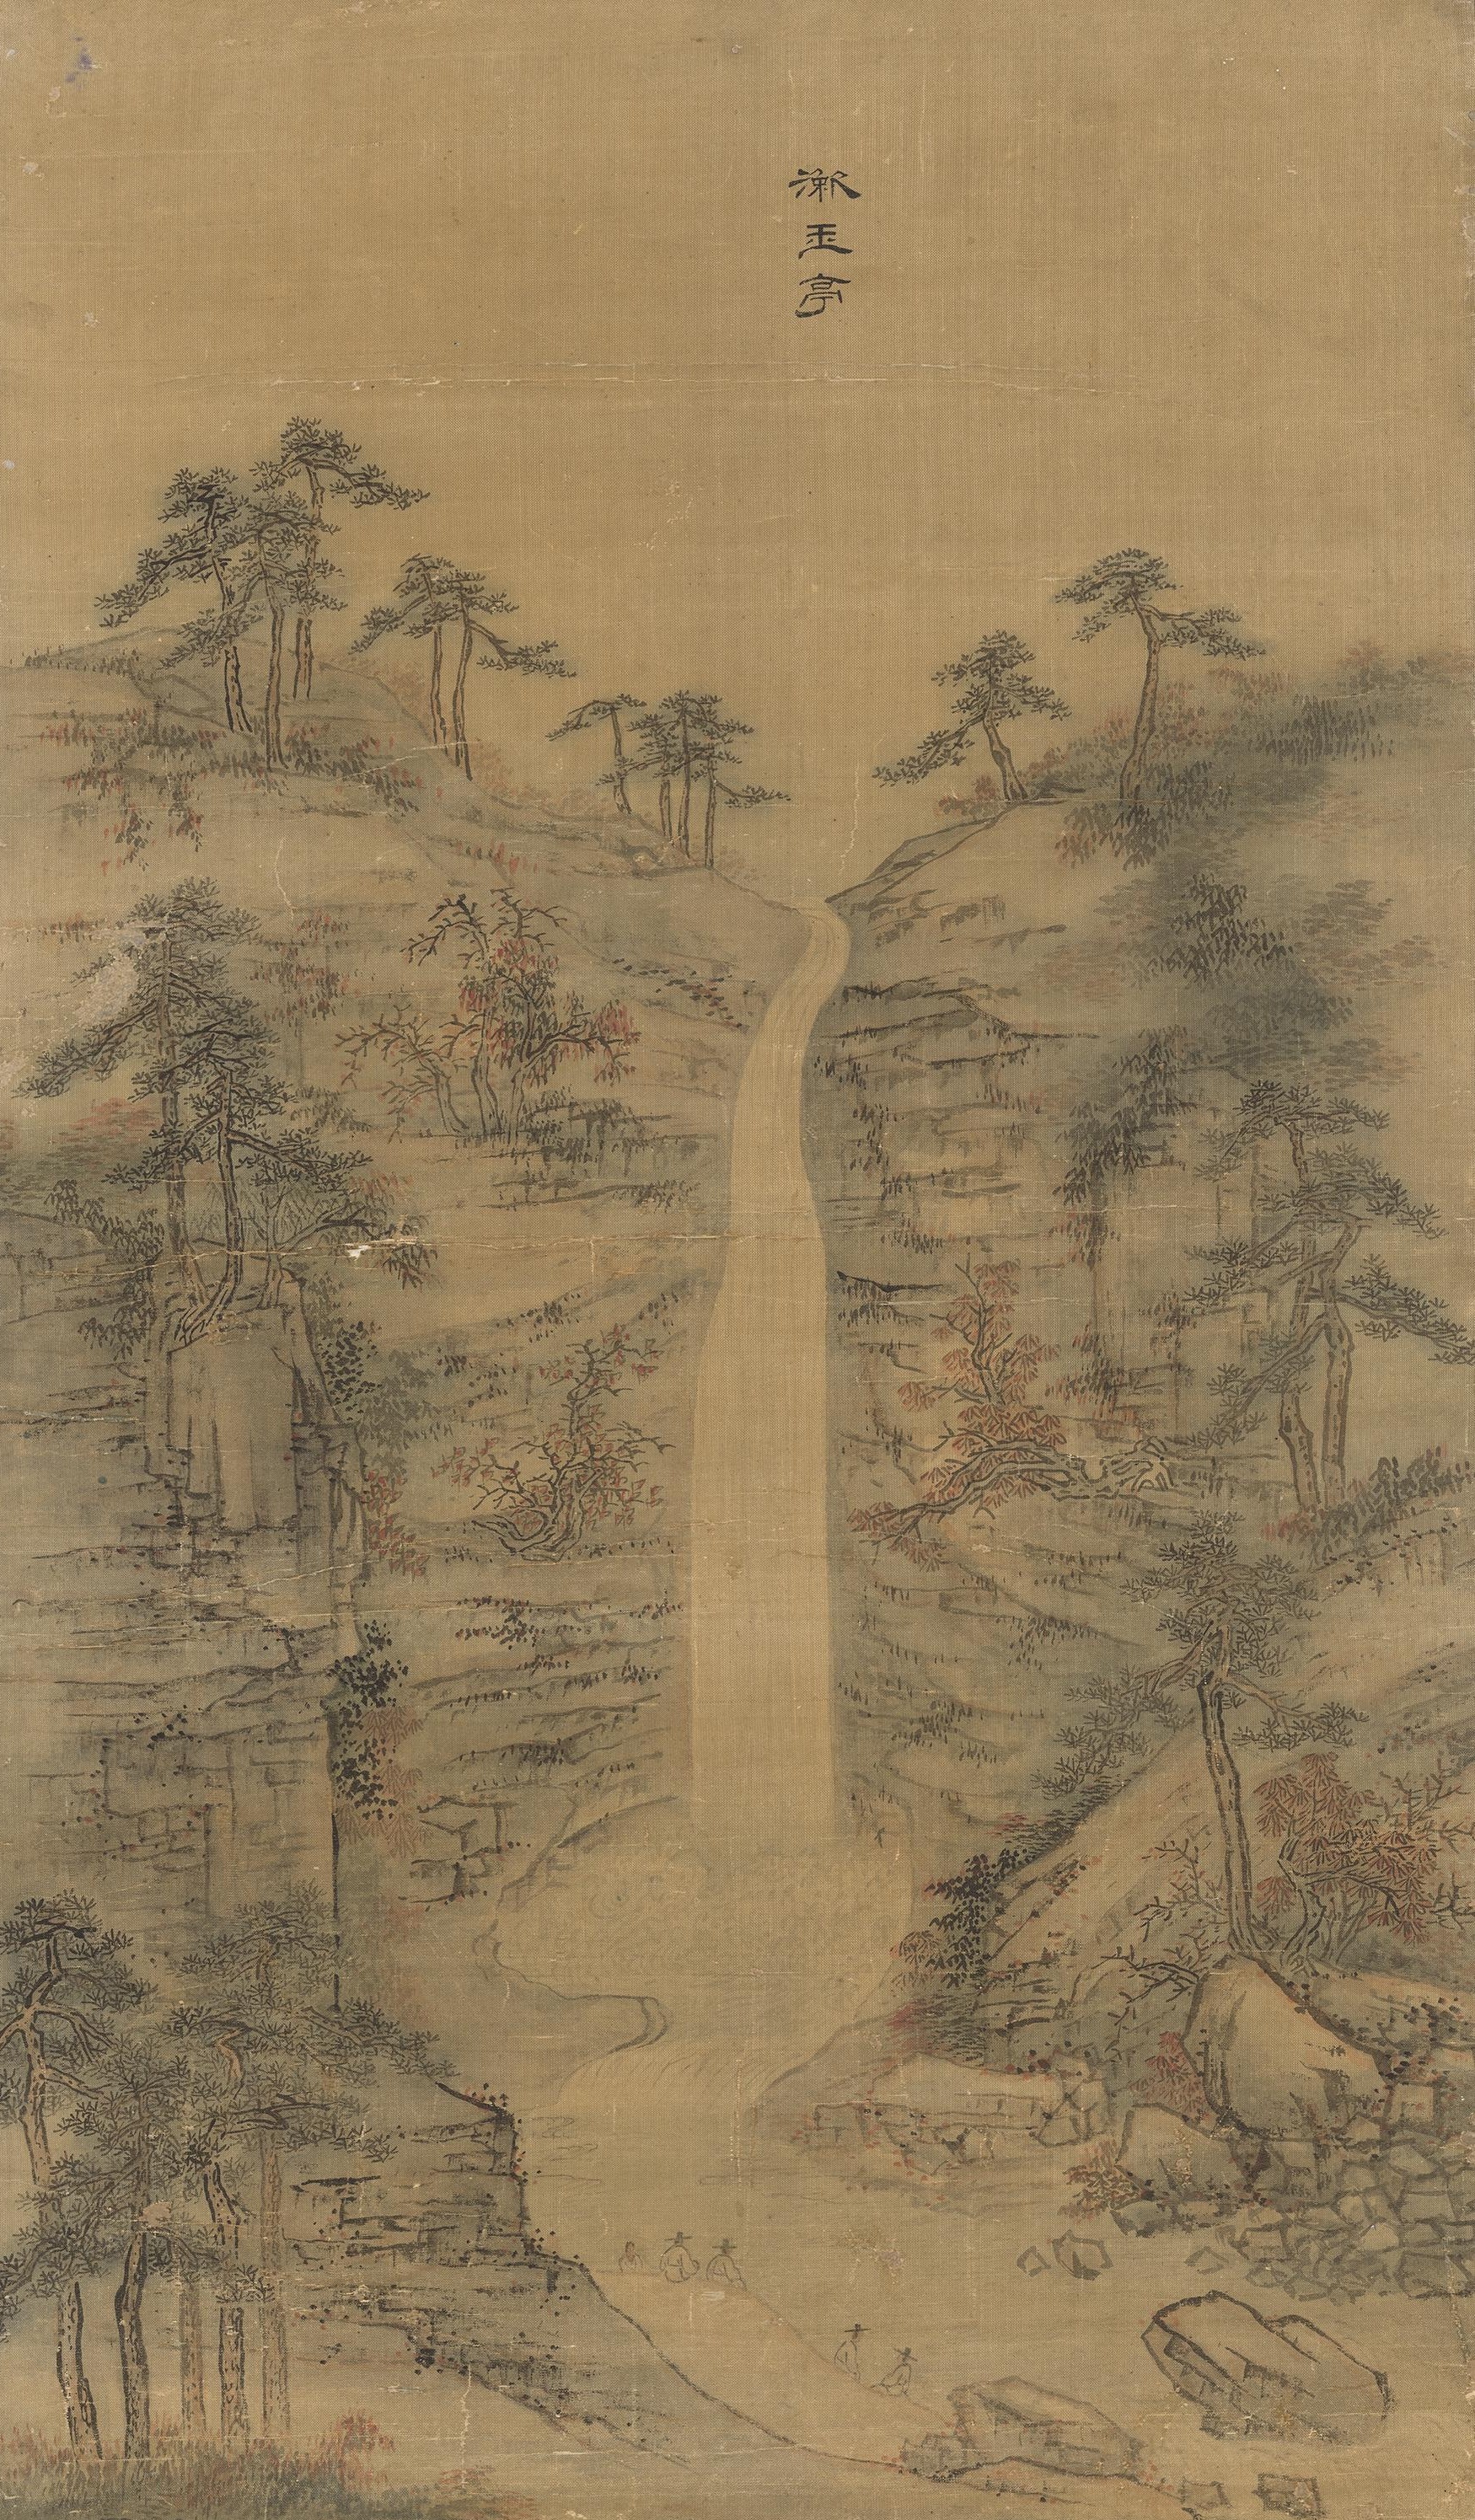 漱玉亭